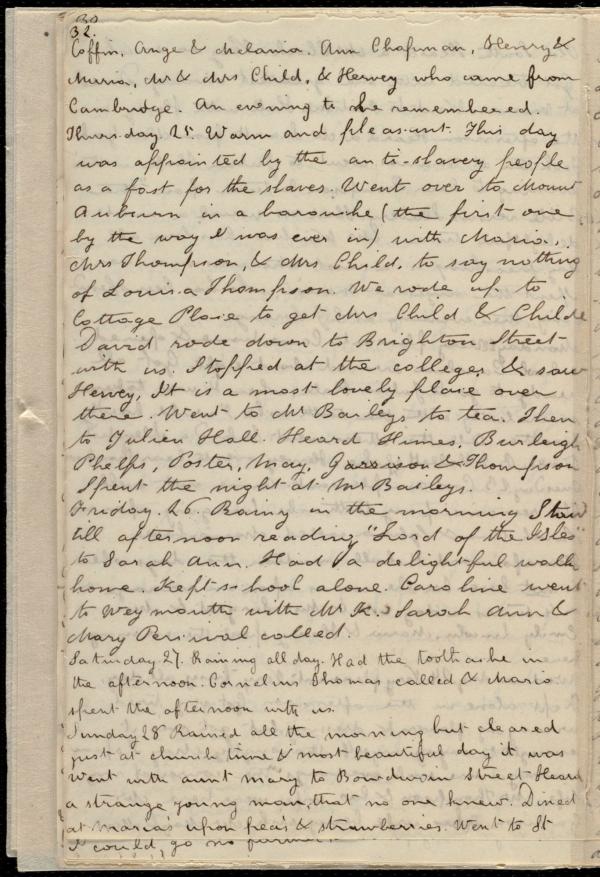 32.
Coffin, Ange & Melania. Ann Chapman, Henry &
Maria, Mr & Mrs Child, & Hervey who came from
Cambridge. An evening to be remembered.
Thursday 25. Warm and pleasant. This day
was appointed by the anti-slavery people
as a fast for the slaves. Went over to Mount
Auburn in a barouche (the first one
by the way I was ever in) with Maria,
Mrs Thompson, & Mrs Child, to say nothing
of Louisa Thompson. We rode up to
Cottage Place to get Mrs Child & Childe
David rode down to Brighton Street
with us. Stopped at the colleges & saw
Hervey, It is a most lovely place over
there. Went to Mr Baileys to tea. Then
to Julien Hall. Heard Himes, Burleigh
Phelps, Foster, May, Garrison & Thompson
Spent the night at Mr Baileys.
Friday. 26. Rainy in the morning Staid
till afternoon reading "Lord of the Isles"
to Sarah Ann. Had a delightful walk
home. Kept school alone. Caroline went
to Weymouth with Mr K. Sarah Ann &
Mary Percival called.
Saturday 27. Raining all day. Had the toothache in
the afternoon. Cornelius Thomas called & Maria
spent the afternoon with us.
Sunday 28 Rained all the morning but cleared
just at church time & most beautiful day it was
Went with aunt Mary to Bowdwoin Street Heard
a strange young man, that no one knew. Dined
at Maria's upon peas & strawberries. Went to St
I could, go no further